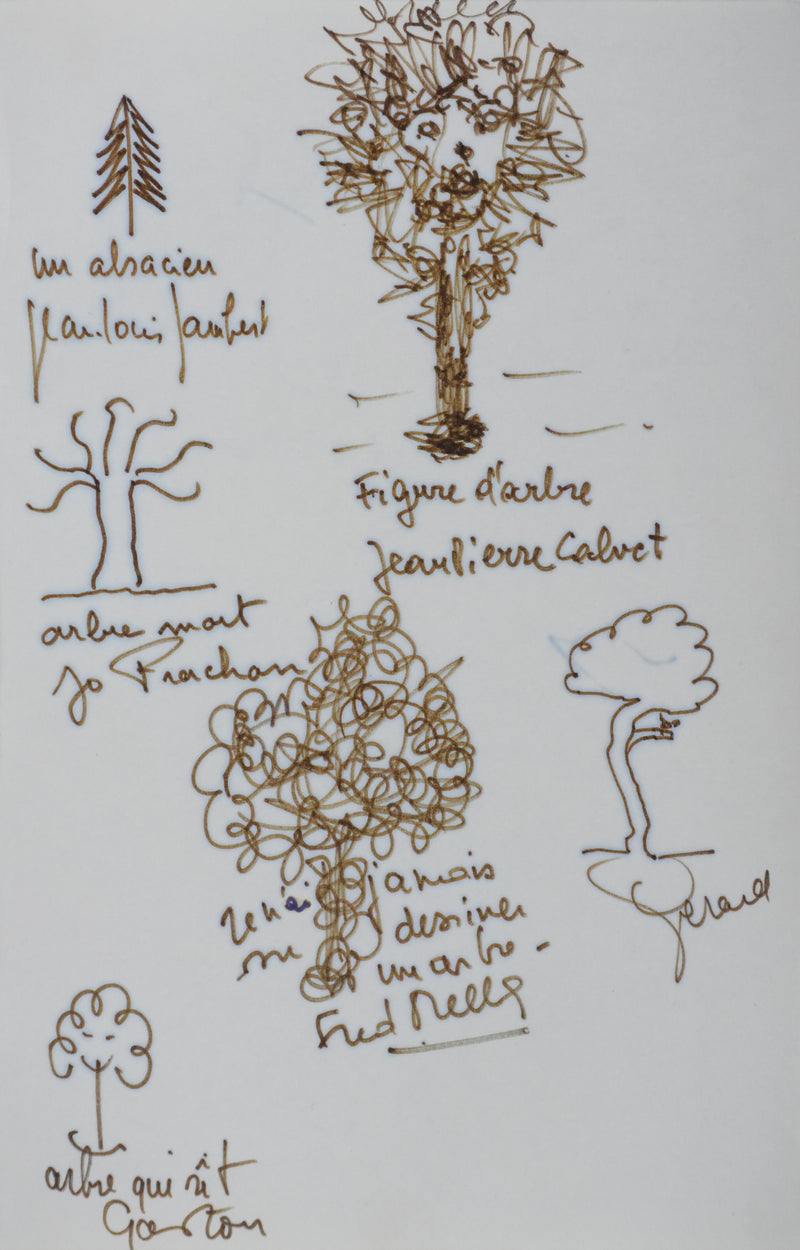 un alsacien
Jean-Louis Jambert
Figure d'arbre
Jean Pierre Calvet
arbre mort
Jo Frachon
je n'ai jamais
su dessiner
un arbre -
Fred Mella
Gérard
arbre qui rît
Gaston